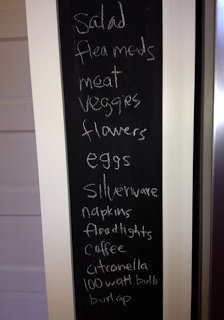 salad
flea meds
meat
veggies
flowers
eggs
silverware
napkins
floodlights
coffee
citronella
100 watt bulb
burlap